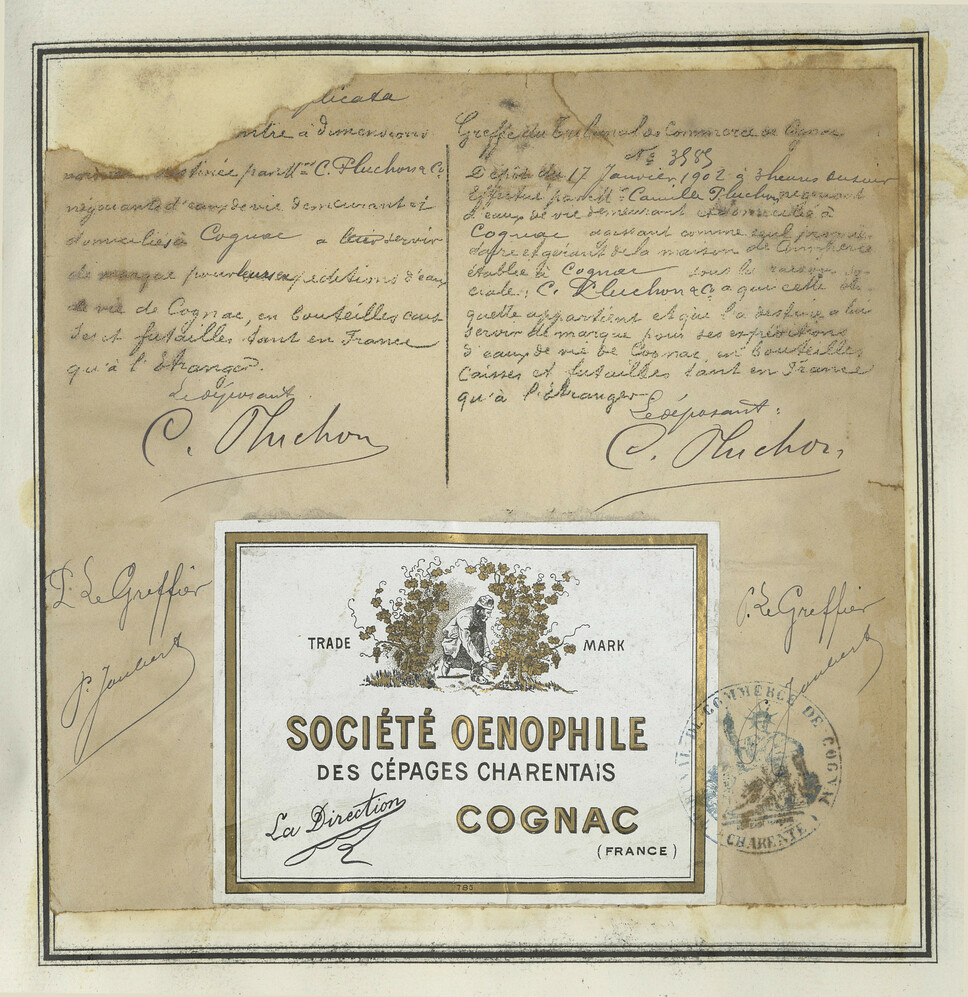 plicata
ntre à dimensions
stinée par M. C. Pluchon & Cie
négociants d'eaux de vie demeurant et
domiciliés à Cognac a leur servir
de marque pour leurs expéditions d'eaux
de vie de Cognac, en bouteilles cais
ses et futailles tant en France
qu'à l'étranger.
Le déposant.
C. Pluchon
Greffe du Tribunal de Commerce de Cognac
No 3585
Dépôt du 17 Janvier 1902 à 3 heures du soir
Effectué par M. Camille Pluchon, négociant
d'eaux de vie demeurant et domicilié à
Cognac agissant comme seul proprié-
taire et gérant de la maison de Commerce
établie à Cognac sous la raison so-
ciale: C. Pluchon & Cie a qui cette éti-
quette appartient et qui l'a destinée a lui
servir de marque pour ses expéditions
d'eaux de vie de Cognac, en bouteilles
caisses et futailles tant en France
qu'à l'étranger
Le déposant:
C. Pluchon
P. Le Greffier
P. Joubert
P. Le Greffier
Joubert
TRADE MARK
SOCIÉTÉ OENOPHILE
DES CÉPAGES CHARENTAIS
La Direction
COGNAC
(FRANCE)
785
DE COMMERCE DE COGNAC
(CHARENTE)